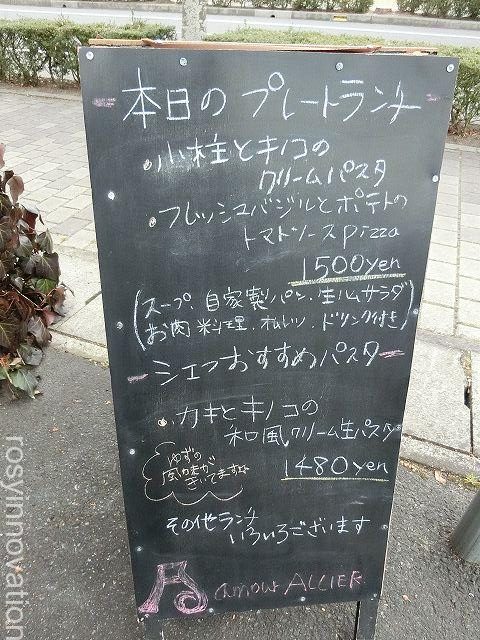 本日のプレートランチ
小柱とキノコの
クリームパスタ
フレッシュバジルとポテトの
トマトソースpizza
1500yen
(スープ、自家製パン、生ハムサラダ
お肉料理、オムレツ、ドリンク付き)
シェフおすすめパスタ
カキとキノコの
和風クリーム生パスタ
1480yen
ゆずの
風味が
きいてます
その他ランチ
いろいろございます
amour ALCIER
rosyinnovation